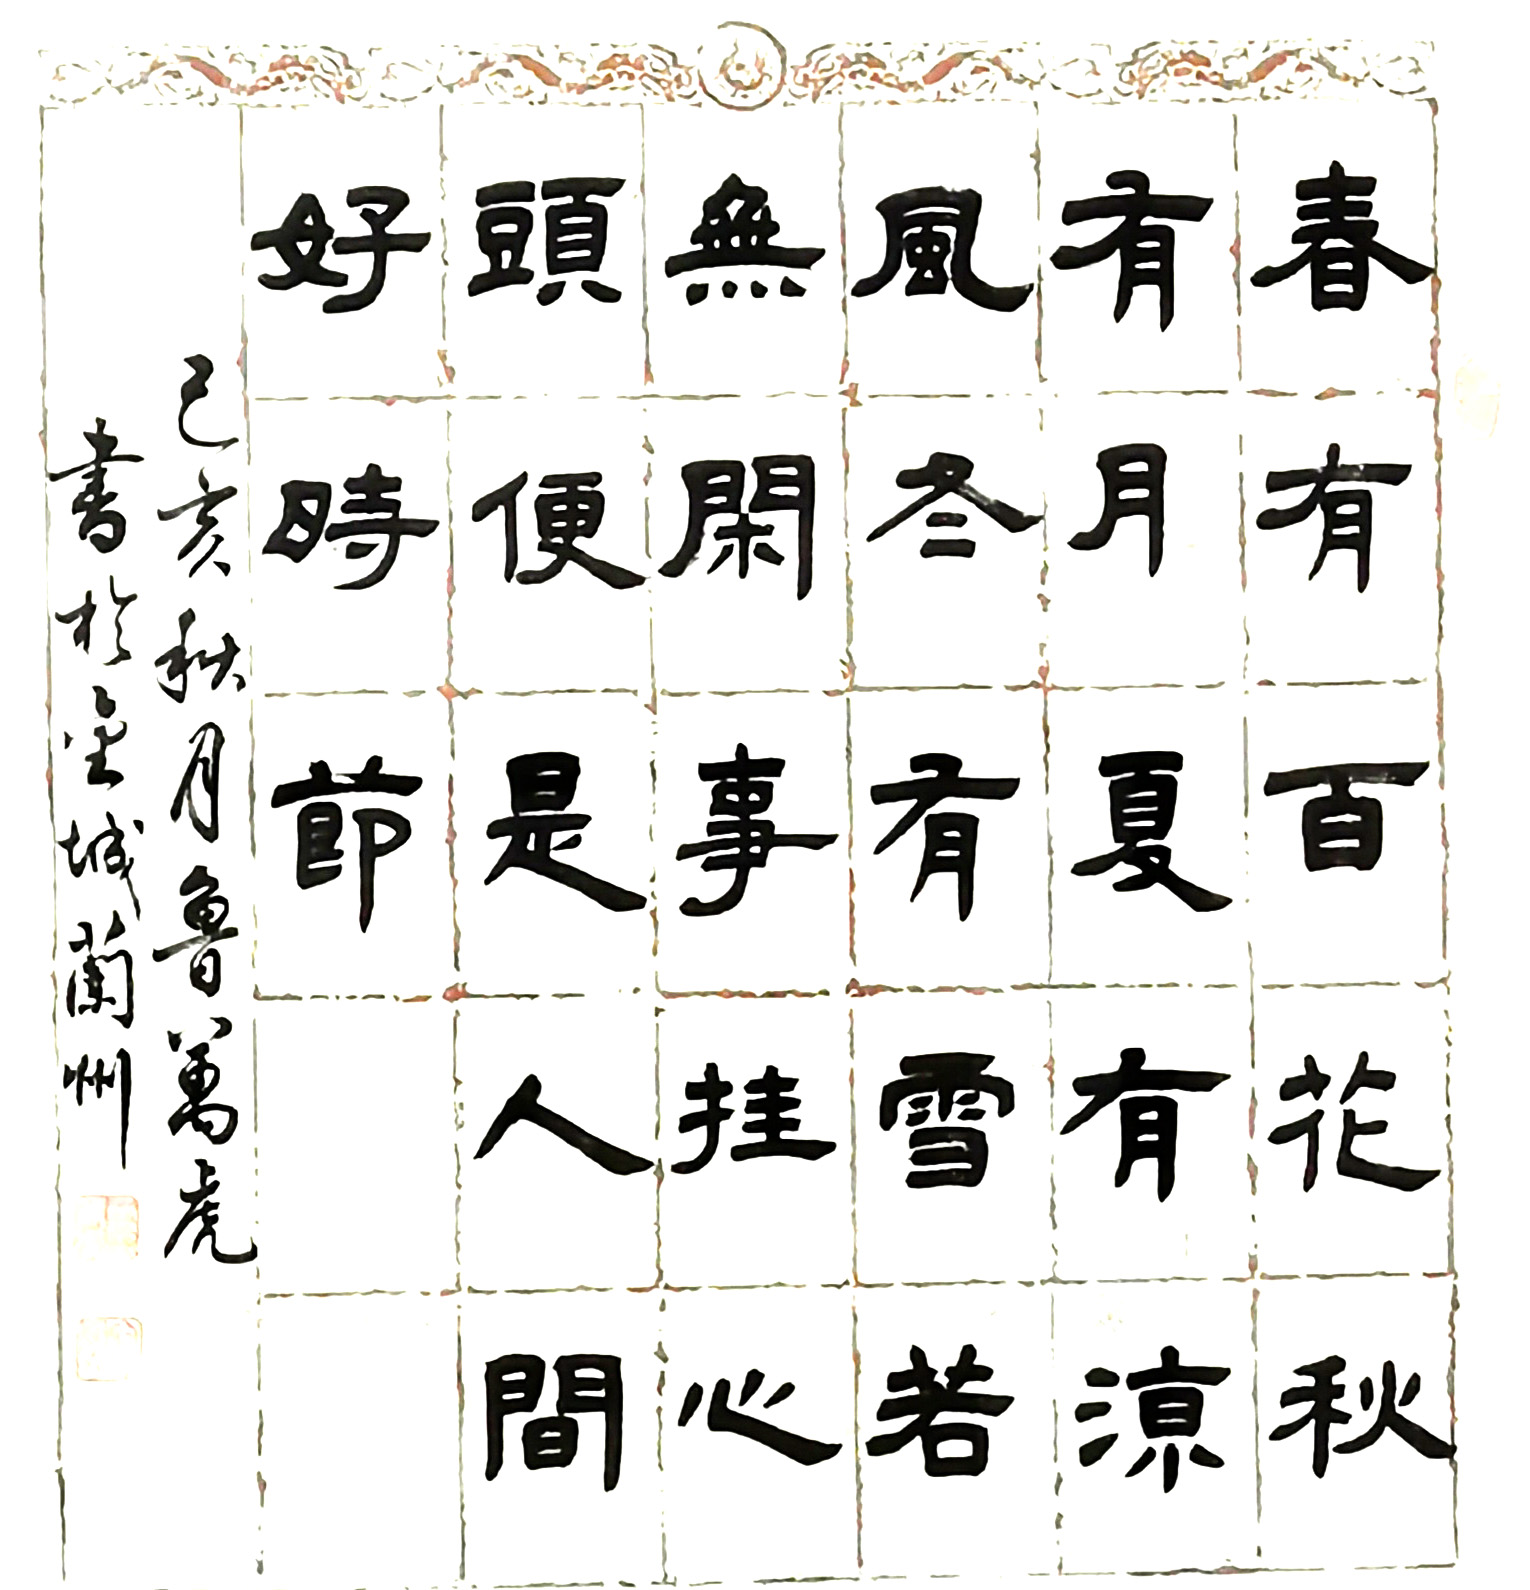 春有百花秋
有月夏有涼
風冬有雪若
無閑事挂心
頭便是人間
好時節
己亥秋月魯萬虎
書於金城蘭州